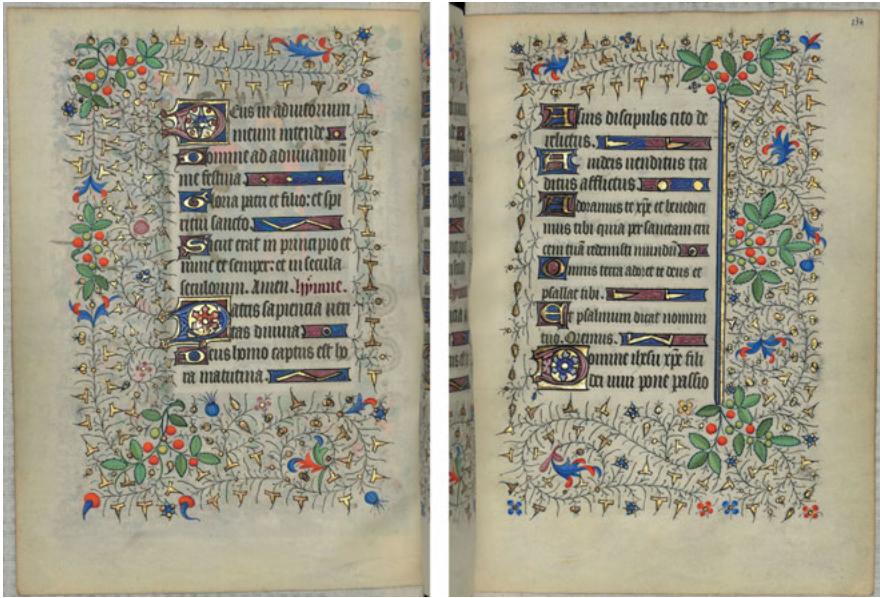 Deus in adiutorium
meum intende
Domine ad adiuuandū
me festina
Gloria patri et filio: et spi
ritui sancto
Sicut erat in principio et
nunc et semper: et in secula
seculorum. Amen. hympne.
Patris sapiencia ueri
tas diuina
Deus homo captus est ho
ra matutina.
237
A suis discipulis cito de
relictus.
A iudeis uenditus tra
ditus afflictus
Adoramus te xp̄e et benedici
mus tibi quia per sanctam cru
cem tuā redemisti mundū
Omnis terra adoret te deus et
psallat tibi.
Et psalmum dicat nomini
tuo. Oremus.
Domine ihesu xp̄e fili
dei uiui pone passio